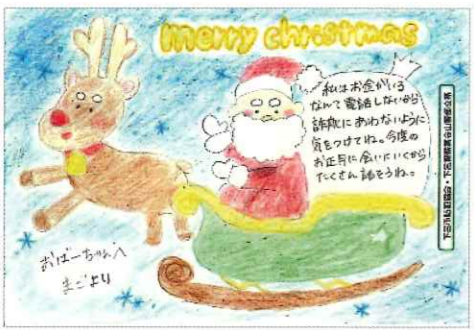 merry christmas
私はお金がいる
なんて電話しないから
詐欺にあわないように
気をつけてね。今度の
お正月に会いにいくから
たくさん話そうね。
おばーちゃんへ
まごより